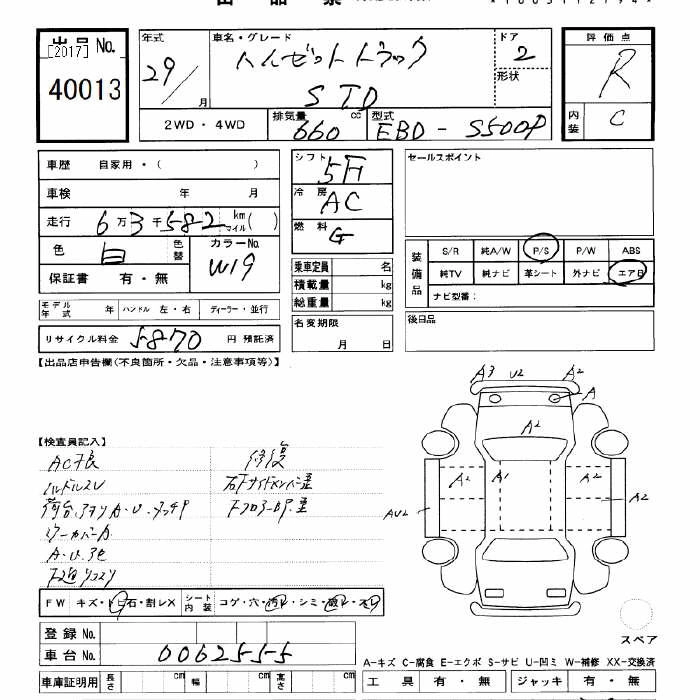 出品票
出品No. 年式 車名・グレード ドア 評価点
[2017] 29/ ハイゼットトラック 2 R
40013 月 STD 形状
2WD・4WD 排気量 660 cc 型式 EBD-S500P 内装 C
車歴 自家用・( )
車検 年 月
走行 6万3千582 km マイル( )
色 白 色替 カラーNo. W19
保証書 有・無
モデル年式 年 ハンドル 左・右 ディーラー・並行
リサイクル料金 5870 円 預託済
シフト 5F
冷房 AC
燃料 G
乗車定員 名
積載量 kg
総重量 kg
名変期限 月 日
セールスポイント
装備品 S/R 純A/W P/S P/W ABS
純TV 純ナビ 革シート 外ナビ エアB
ナビ型番:
後日品
【出品店申告欄(不良箇所・欠品・注意事項等)】
【検査員記入】
AC不良 修復
ハンドルスレ
荷台、アオリA・U・タッチP
A・U・多
下廻りサビ
FW キズ・ト石・割レX シート内装 コゲ・穴・汚レ・シミ・破レ・スレ
登録No.
車台No. 0062555
車庫証明用 長さ cm 幅 cm 高さ cm
A3 U2 A2
A
A2
A2 A1 A2 A2
AU2
スペア
A-キズ C-腐食 E-エクボ S-サビ U-凹ミ W-補修 XX-交換済
工具 有・無 ジャッキ 有・無